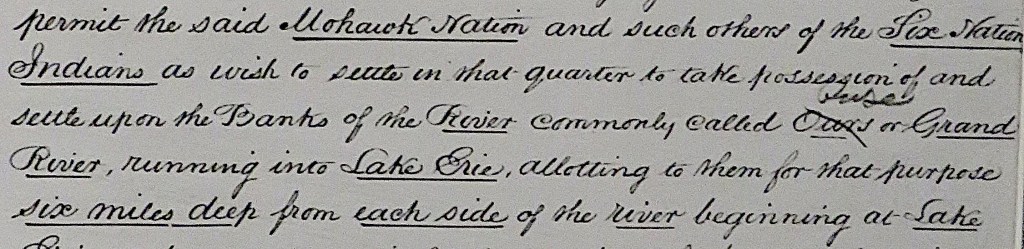 permit the said Mohawk Nation and such others of the Six Nation
Indians as wish to settle in that quarter to take possession of and
Ouse
settle upon the Banks of the River commonly called Ours or Grand
River, running into Lake Erie, allotting to them for that purpose
six miles deep from each side of the river beginning at Lake